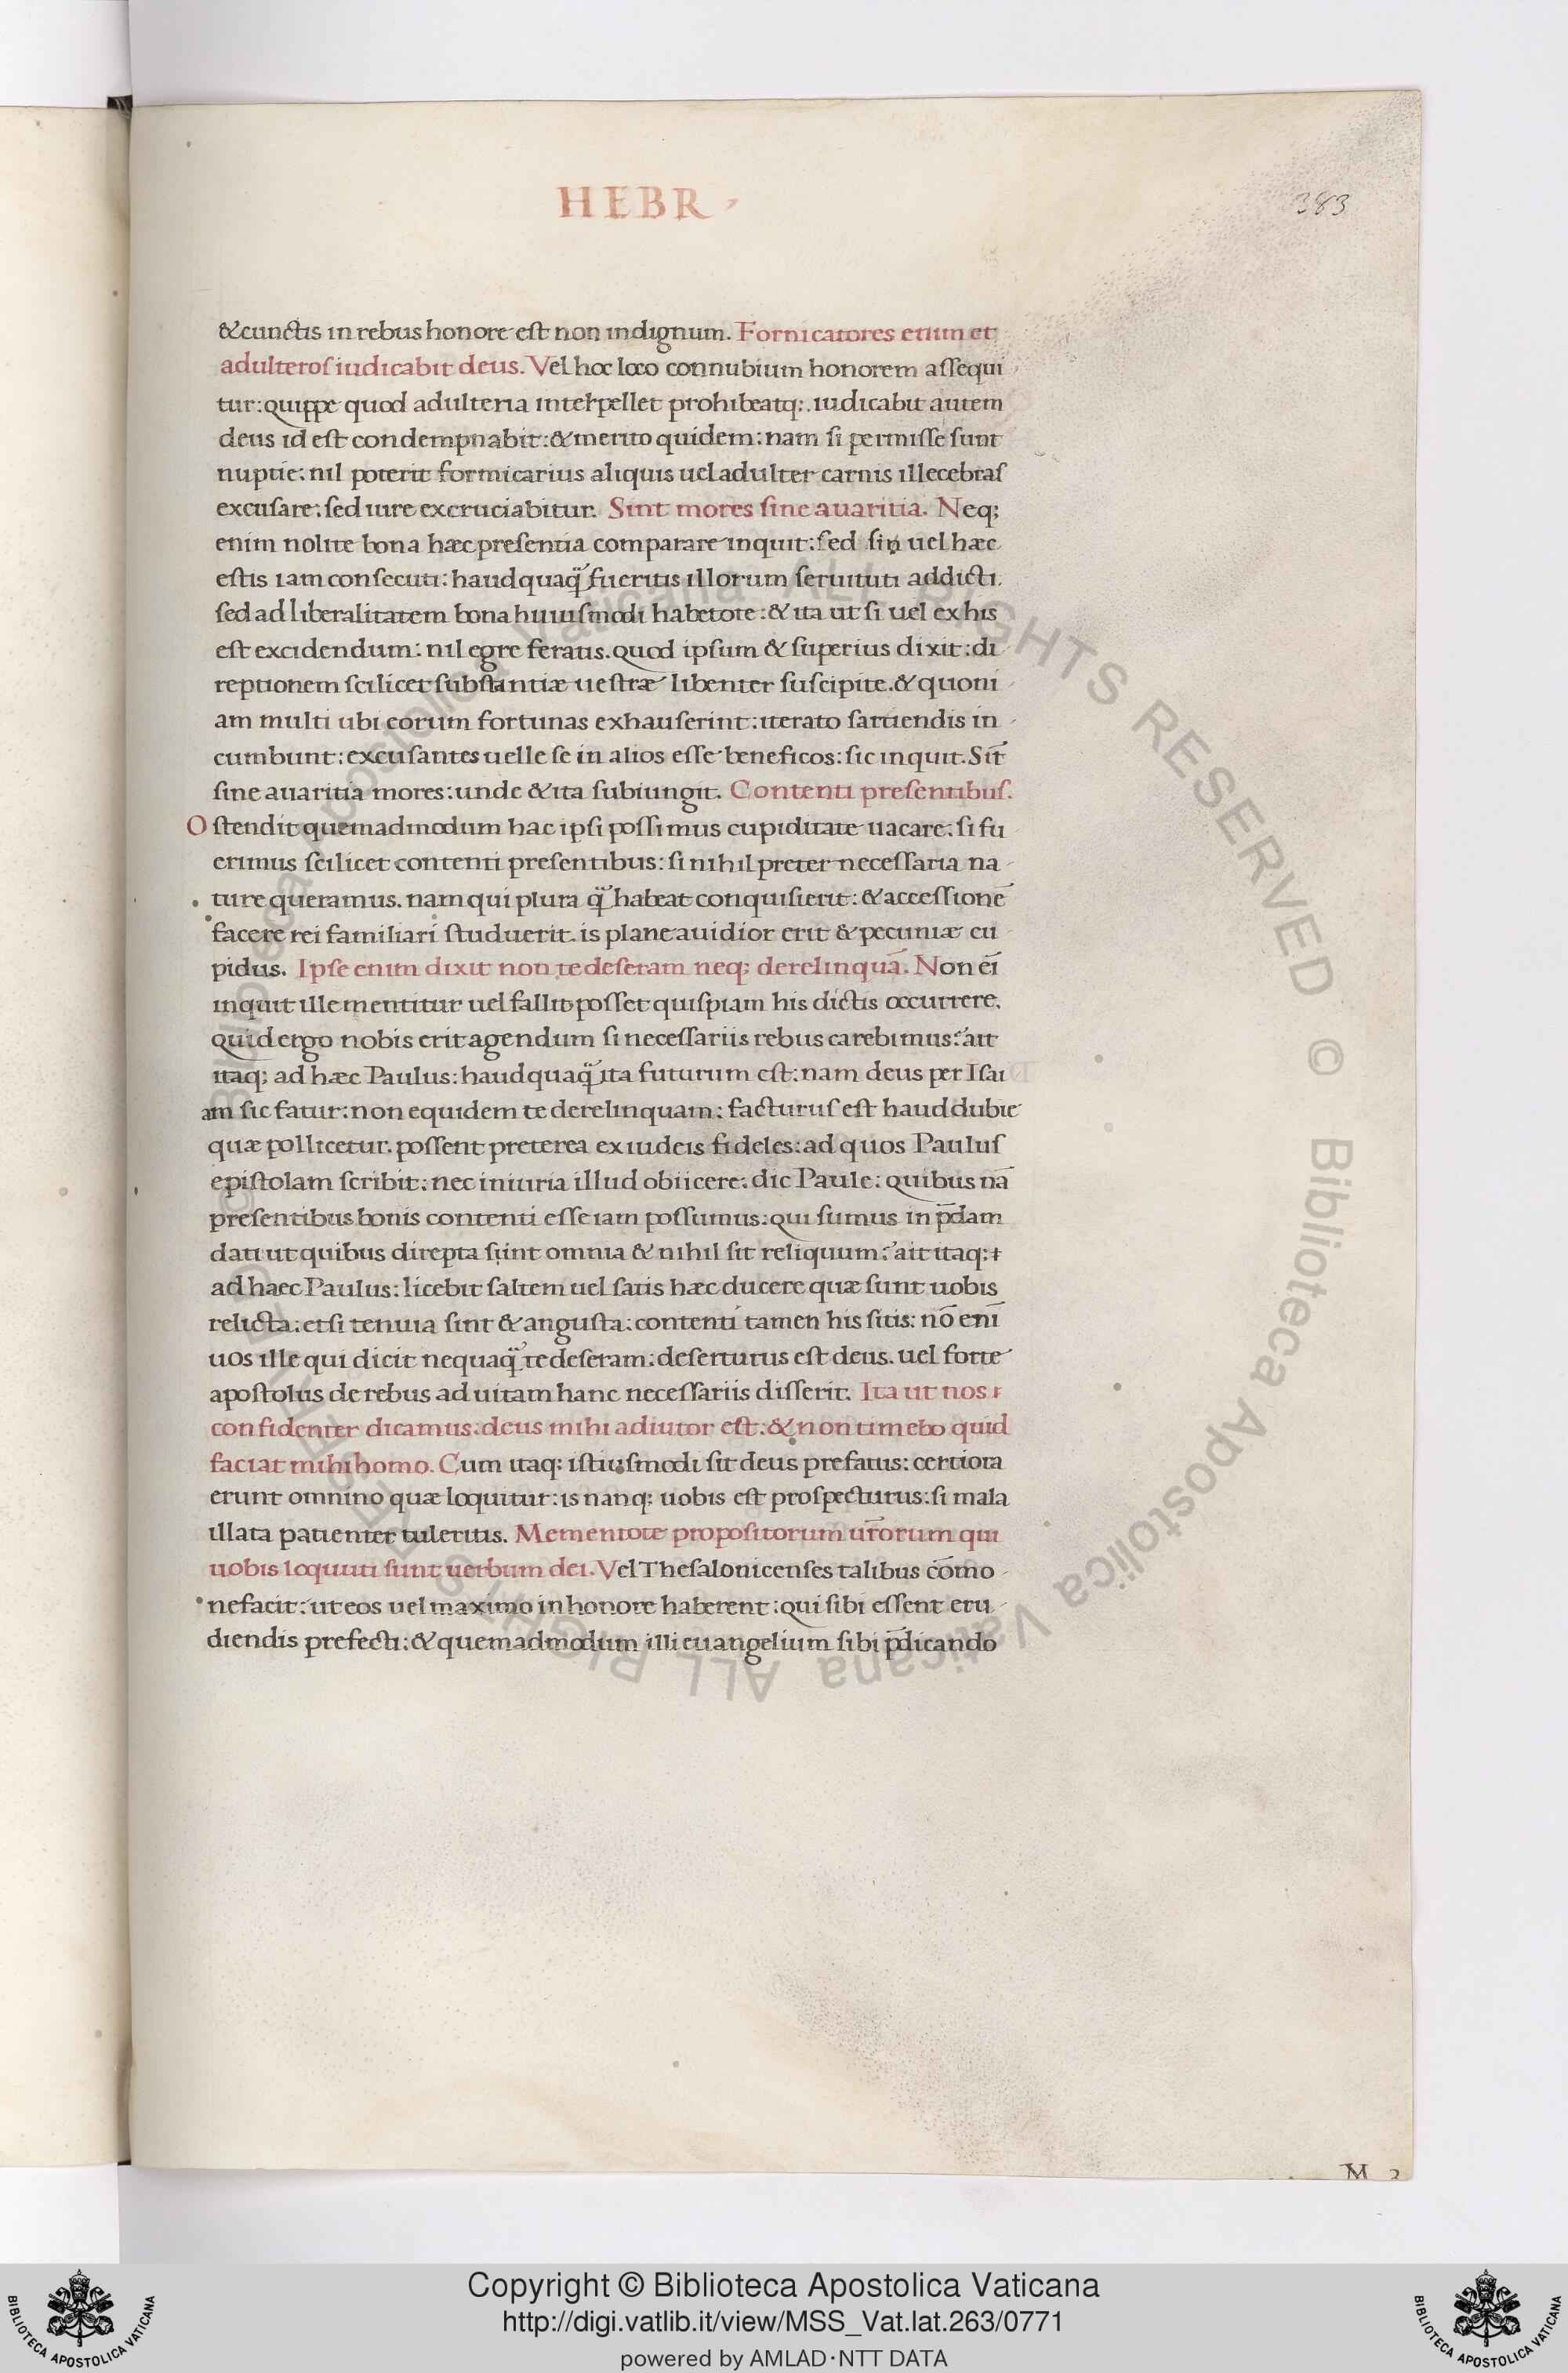 HEBR
383
& cunctis in rebus honore est non indignum. Fornicatores enim et
adulteros iudicabit deus. Vel hoc loco connubium honorem assequi
tur: quippe quod adulteria interpellet prohibeatq;. iudicabit autem
deus id est condempnabit: & merito quidem: nam si permisse sunt
nuptie: nil poterit formicarius aliquis uel adulter carnis illecebras
excusare: sed iure excruciabitur. Sint mores sine auaritia. Neq;
enim nolite bona hæc presentia comparare inquit: sed sin uel hæc
estis iam consecuti: haudquaq̃ fueritis illorum seruituti addicti.
sed ad liberalitatem bona huiusmodi habetote: & ita ut si uel ex his
est excidendum: nil egre feratis. quod ipsum & superius dixit: di
reptionem scilicet substantiæ uestræ libenter suscipite. & quoni
am multi ubi eorum fortunas exhauserint: iterato sartiendis in
cumbunt: excusantes uelle se in alios esse beneficos: sic inquit. Sit̄
sine auaritia mores: unde & ita subiungit. Contenti presentibus.
Ostendit quemadmodum hac ipsi possimus cupiditate uacare. si fu
erimus scilicet contenti presentibus: si nihil preter necessaria na
ture queramus. nam qui plura q̃ habeat conquisierit: & accessionē
facere rei familiari studuerit. is plane auidior erit & pecuniæ cu
pidus. Ipse enim dixit non te deseram neq; derelinquā. Non eī
inquit ille mentitur uel fallit. posset quispiam his dictis occurrere.
quid ergo nobis erit agendum si necessariis rebus carebimus: ait
itaq; ad hæc Paulus: haudquaq̃ ita futurum est: nam deus per Isai
am sic fatur: non equidem te derelinquam: facturus est haud dubie
quæ pollicetur. possent preterea ex iudeis fideles: ad quos Paulus
epistolam scribit: nec iniuria illud obiicere: dic Paule: quibus nā
presentibus bonis contenti esse iam possumus: qui sumus in p̄dam
dati ut quibus direpta sunt omnia & nihil sit reliquum: ait itaq;
ad haec Paulus: licebit saltem uel satis hæc ducere quæ sunt uobis
relicta: etsi tenuia sint & angusta: contenti tamen his sitis: nō enī
uos ille qui dicit nequaq̃ te deseram: deserturus est deus. uel forte
apostolus de rebus ad uitam hanc necessariis disserit. Ita ut nos
confidenter dicamus: deus mihi adiutor est: & non timebo quid
faciat mihi homo. Cum itaq; istiusmodi sit deus prefatus: certiora
erunt omnino quæ loquitur: is nanq; uobis est prospecturus: si mala
illata patienter tuleritis. Mementote propositorum ur̄orum qui
uobis loquuti sunt uerbum dei. Vel Thesalonicenses talibus cōmo
nefacit: ut eos uel maximo in honore haberent: qui sibi essent eru
diendis prefecti: & quemadmodum illi euangelium sibi p̄dicando
© Biblioteca Apostolica Vaticana ALL RIGHTS RESERVED © Biblioteca Apostolica Vaticana ALL RIGHTS RESERVED
Copyright © Biblioteca Apostolica Vaticana
http://digi.vatlib.it/view/MSS_Vat.lat.263/0771
powered by AMLAD·NTT DATA
BIBLIOTECA APOSTOLICA VATICANA
BIBLIOTECA APOSTOLICA VATICANA